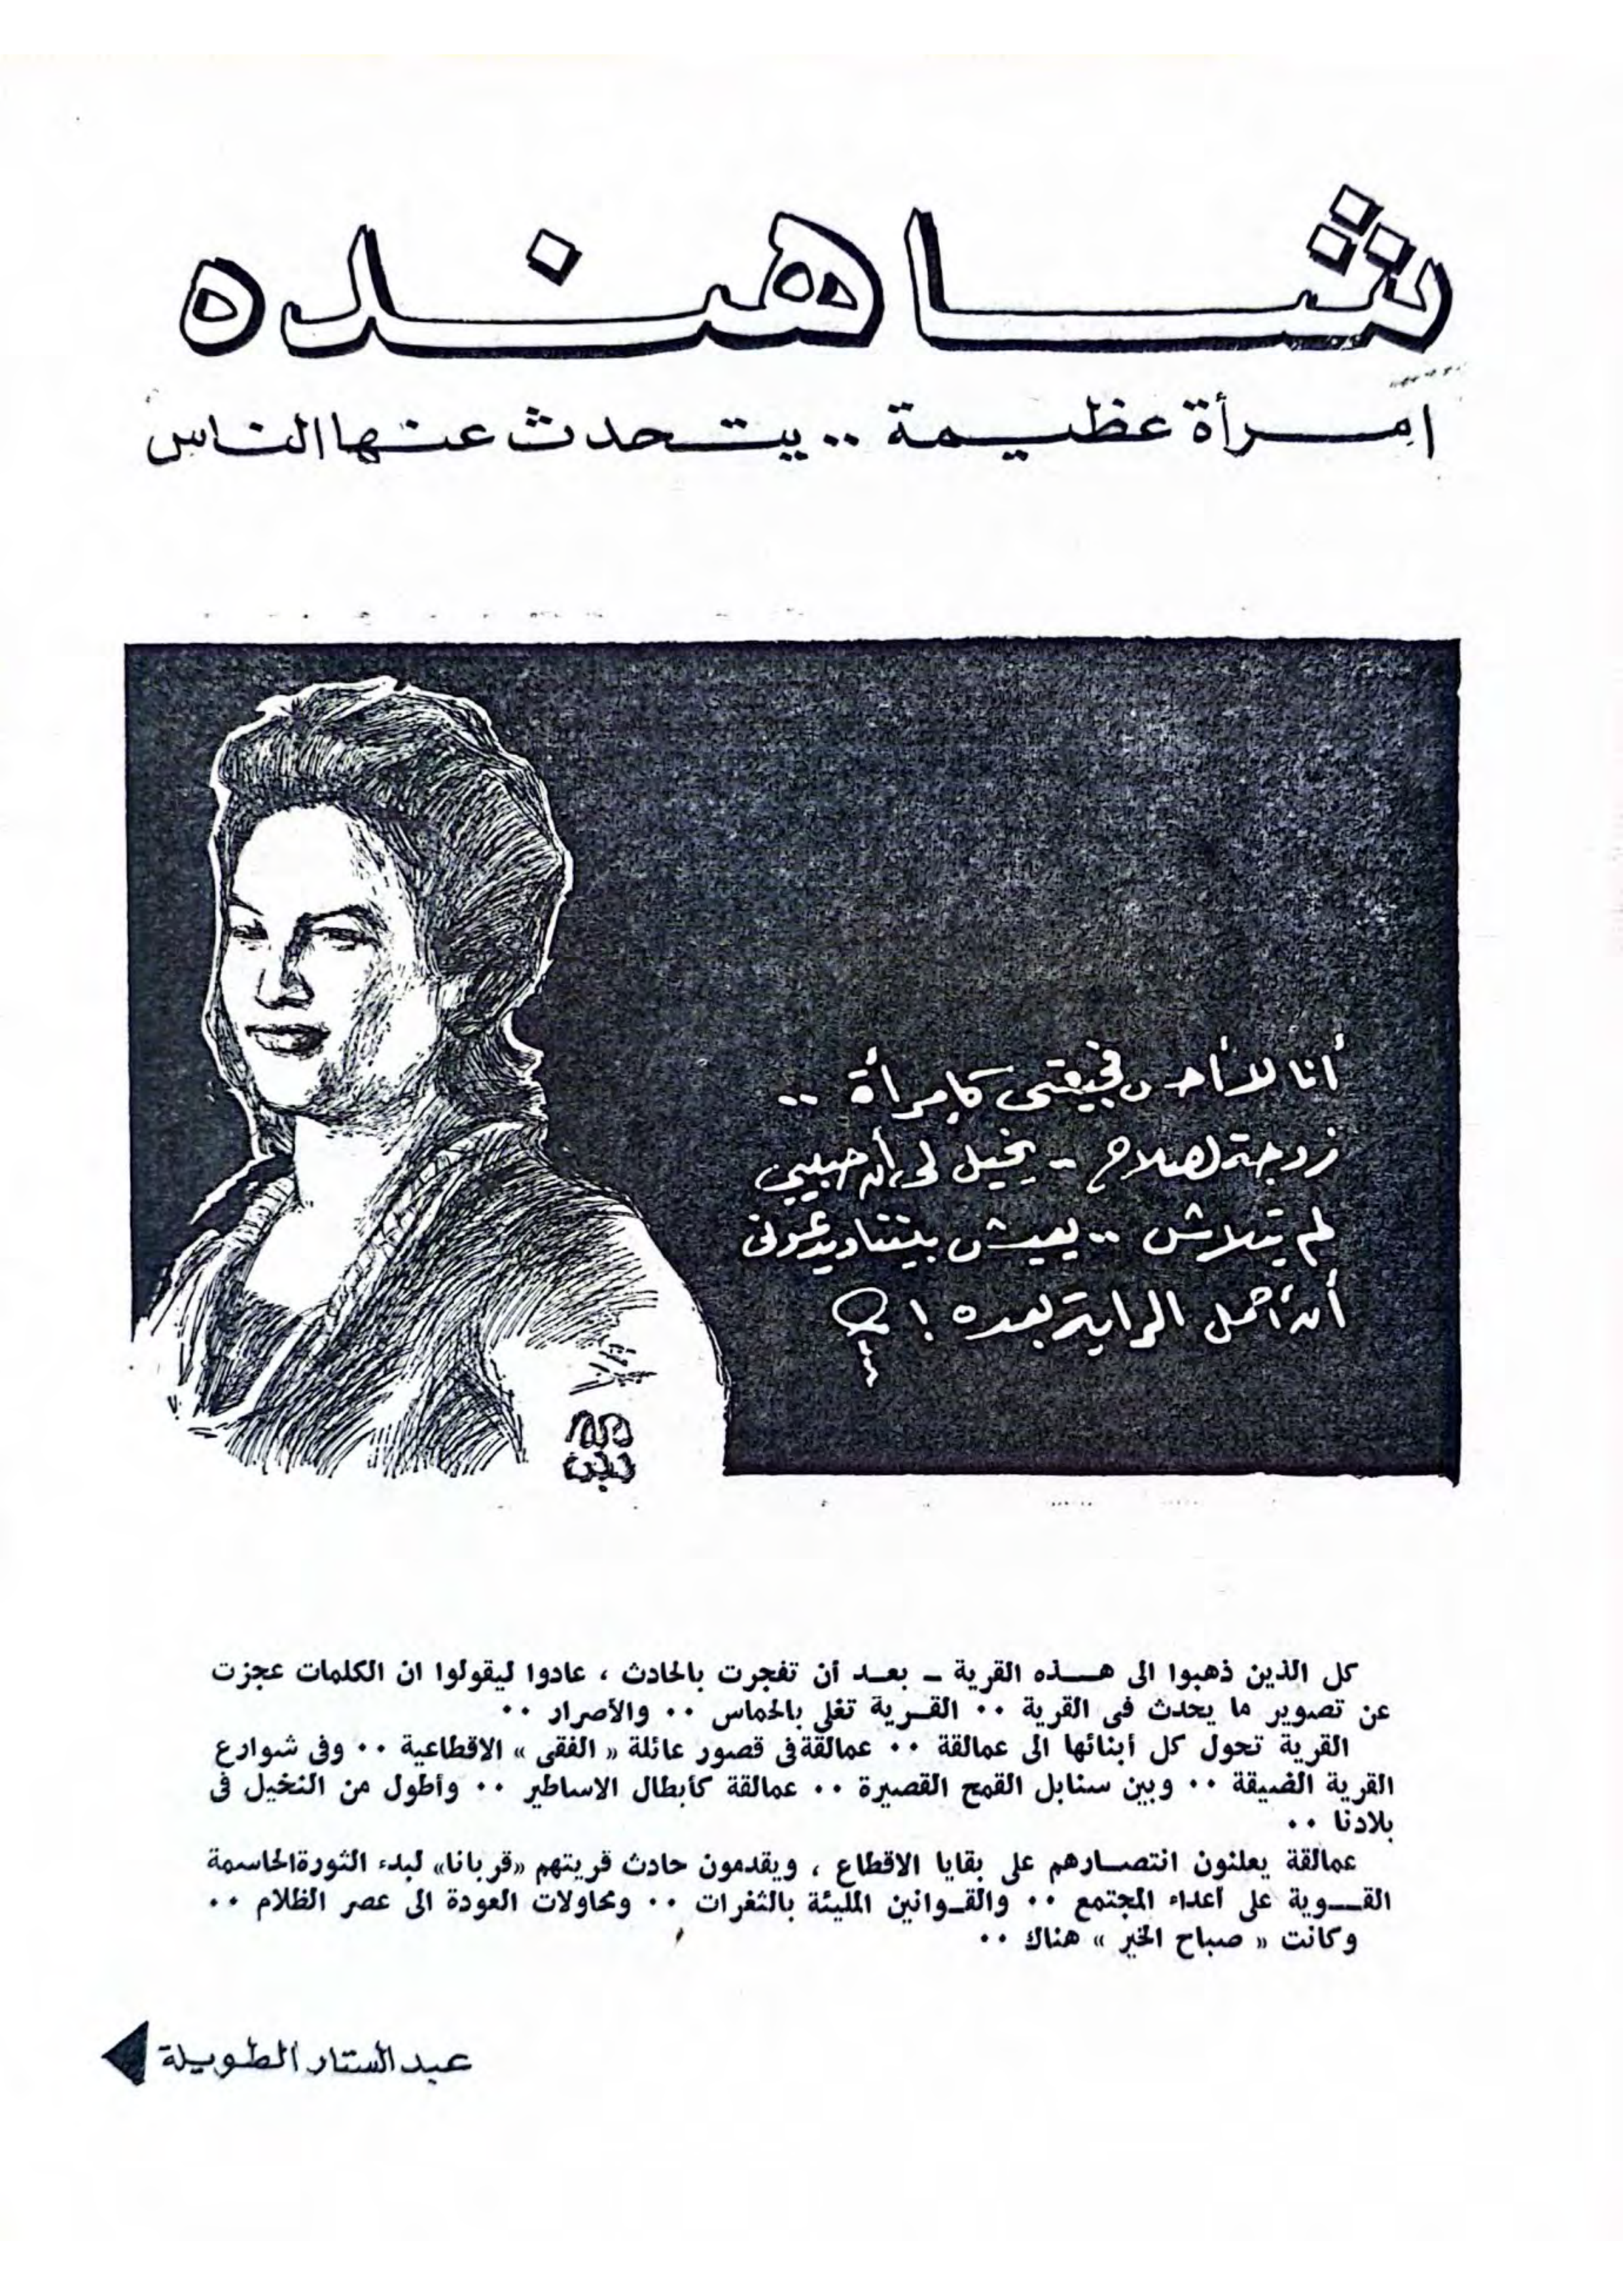 شاهنده
امرأة عظيمة .. يتحدث عنها الناس
أنا لا أحس فجيعتى كإمرأة ..
زوجة لصلاح - يخيل لى أن حبيبي
لم يتلاش .. يعيش بيننا ويدعونى
أن أحمل الراية بعده !
كل الذين ذهبوا الى هـذه القرية - بعد أن تفجرت بالحادث ، عادوا ليقولوا ان الكلمات عجزت
عن تصوير ما يحدث فى القرية .. القرية تغلى بالحماس .. والأصرار ..
القرية تحول كل أبنائها الى عمالقة .. عمالقة فى قصور عائلة « الفقى » الاقطاعية .. وفى شوارع
القرية الضيقة .. وبين سنابل القمح القصيرة .. عمالقة كأبطال الاساطير .. وأطول من النخيل فى
بلادنا ..
عمالقة يعلنون انتصارهم على بقايا الاقطاع ، ويقدمون حادث قريتهم «قربانا» لبدء الثورة الحاسمة
القوية على أعداء المجتمع .. والقوانين المليئة بالثغرات .. ومحاولات العودة الى عصر الظلام ..
وكانت « صباح الخير » هناك ..
عبد الستار الطويلة